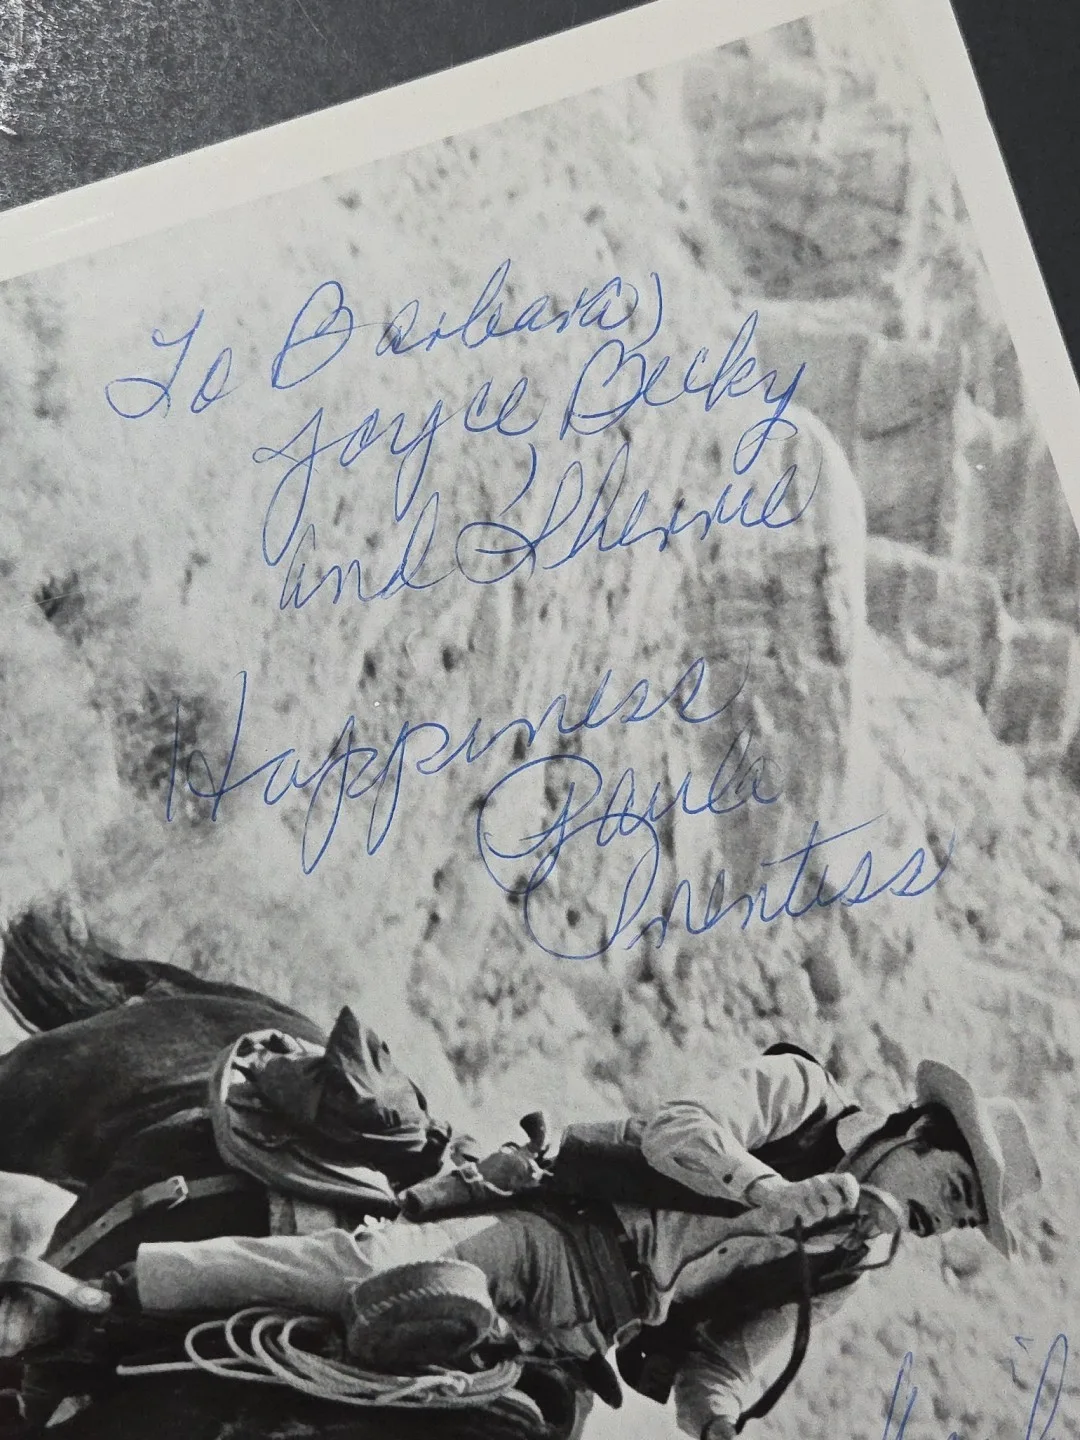 To Barbara,
Joyce, Becky
and Sherrie
Happiness
Paula
Prentiss